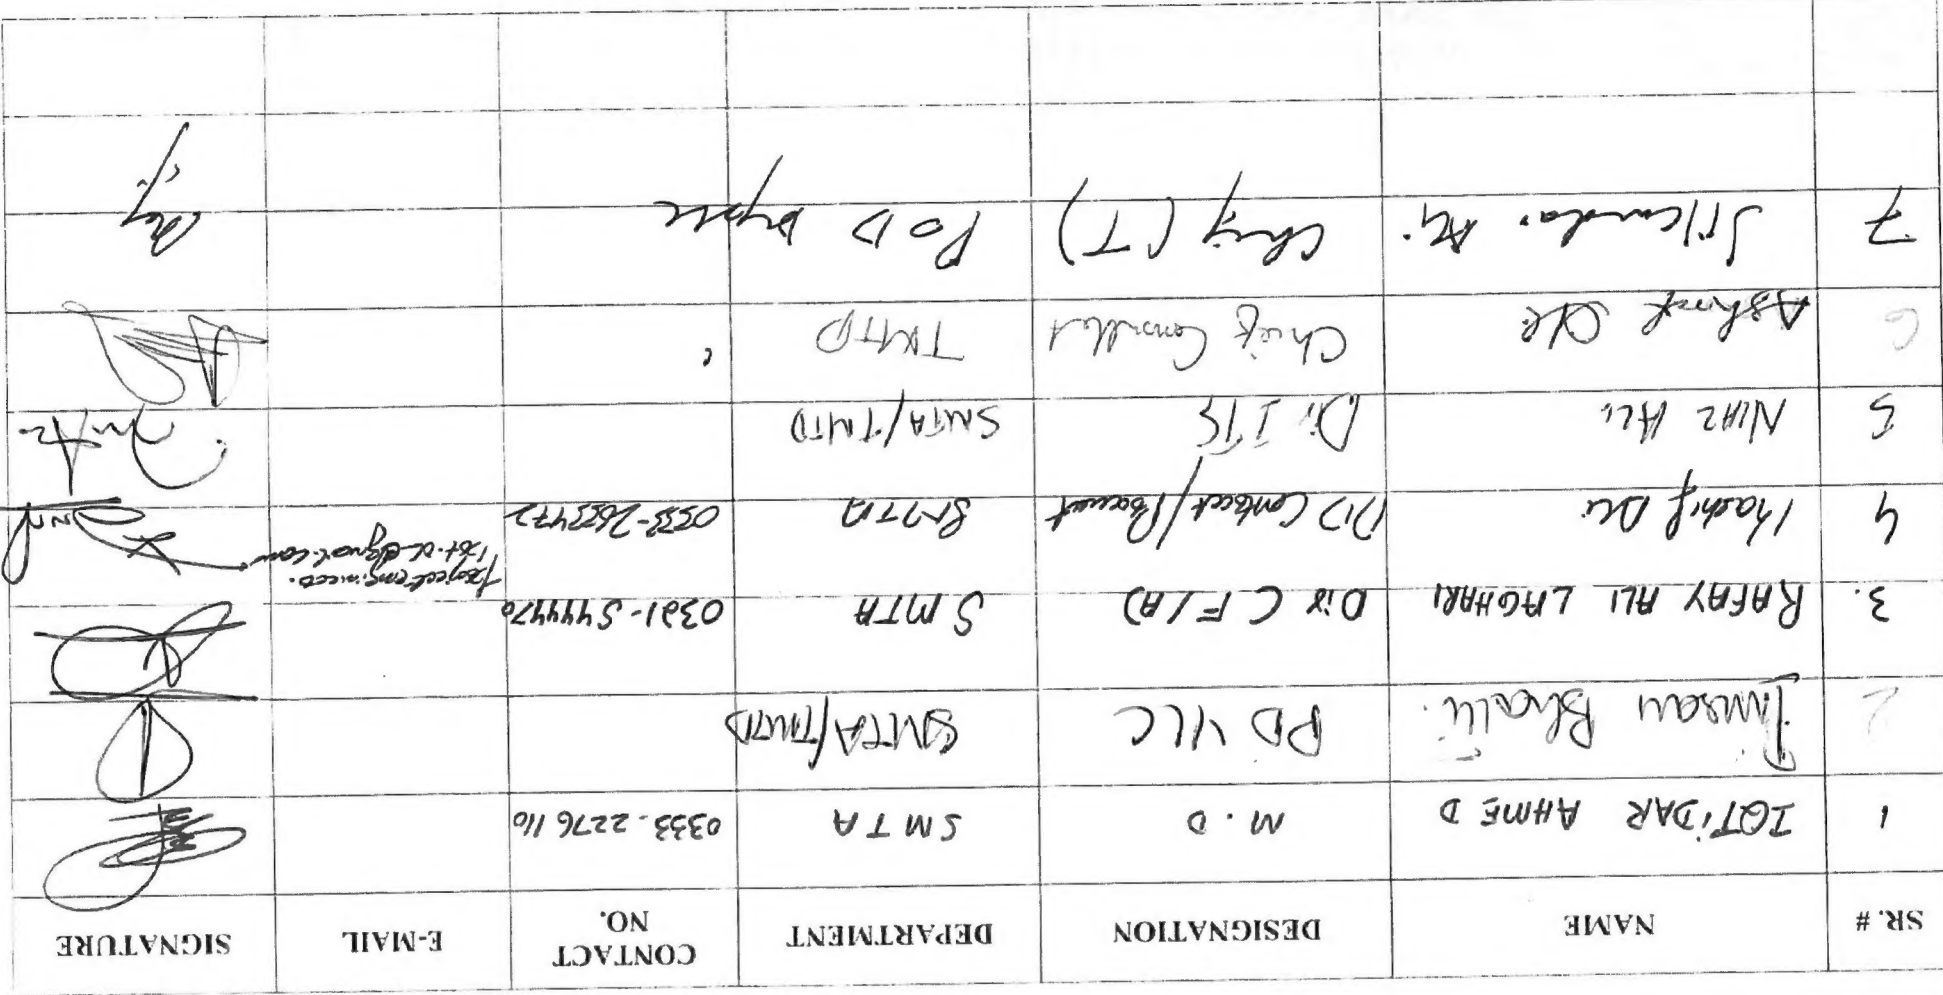 SR. # NAME DESIGNATION DEPARTMENT CONTACT NO. E-MAIL SIGNATURE
1 IQTIDAR AHMED M.D SMTA 0333-2276110
2 Imran Bhatti. PD YLC SMTA/TMTD
3. RAFAY ALI LAGHARI Dir (F/A) SMTA 0321-5444470
4 Kashif Ali SMTA 0333-2653472
5 NIAZ ALI Dir ITS SMTA/TMTD
6 Ashraf Ali Chief TMTD
7 Ali. Chief (T)